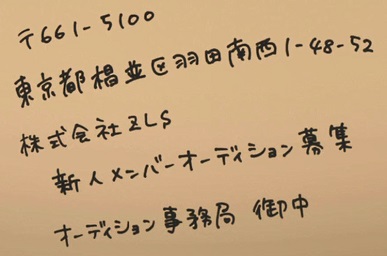 〒661-5100
東京都椙並区羽田南西1-48-52
株式会社ZLS
新人メンバーオーディション募集
オーディション事務局 御中